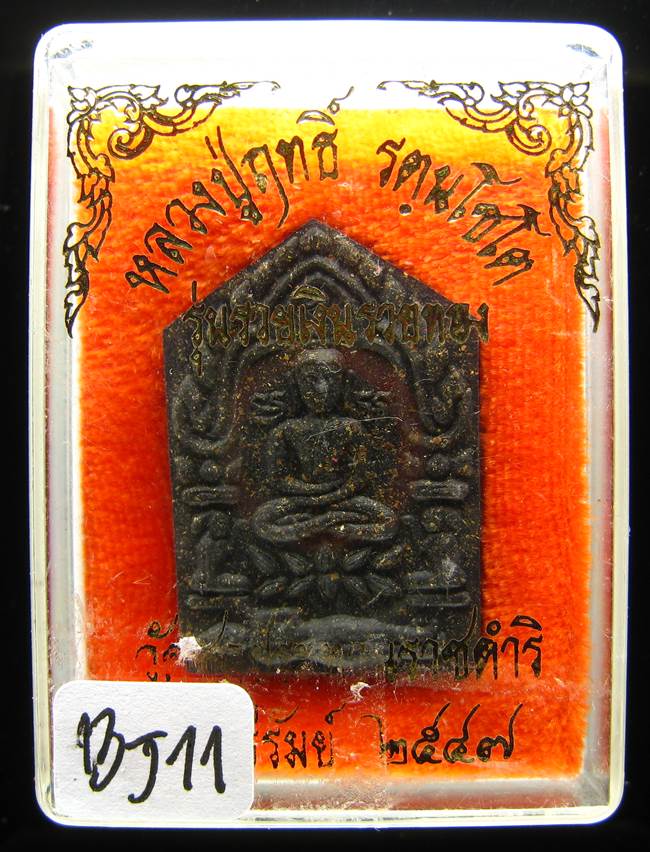 หลวงปู่ฤทธิ์ รตนโชโต
รุ่นรวยเงินรวยทอง
ราชดำริ
รีรัมย์ ๒๕๔๗
B911